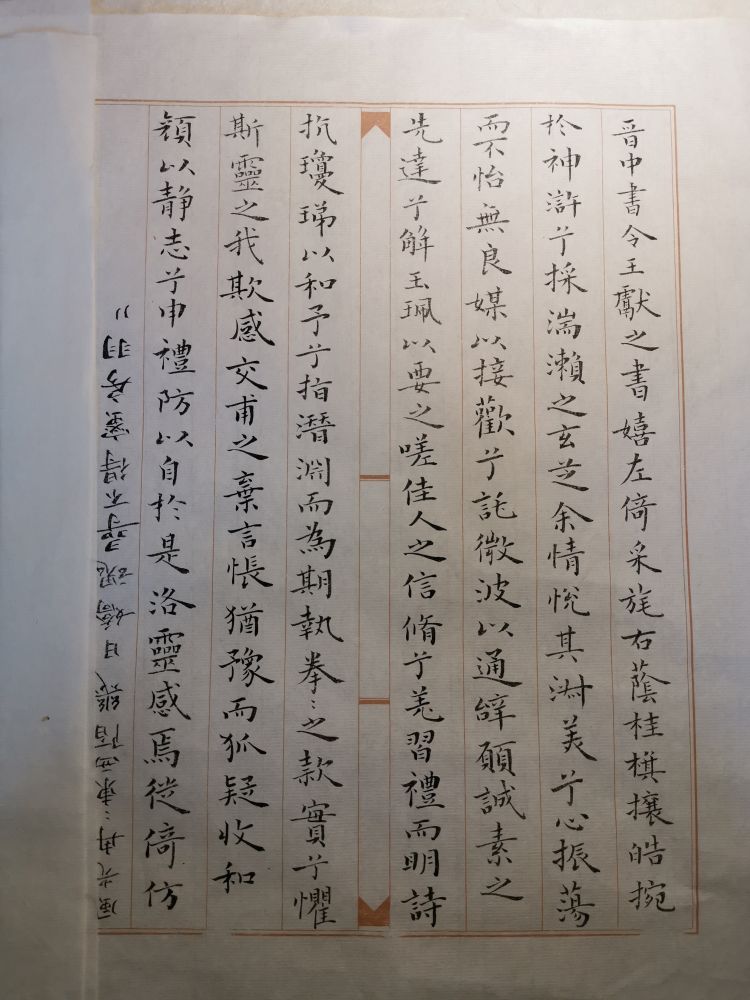 晋中書令王獻之書嬉左倚采旄右蔭桂旗攘皓捥
於神滸兮採湍瀨之玄芝余情悅其淋美兮心振蕩
而不怡無良媒以接歡兮託微波以通辝願誠素之
先達兮解玉珮以要之嗟佳人之信脩兮羌習禮而明詩
抗瓊珶以和予兮指潛淵而為期執拳〻之款實兮懼
斯靈之我欺感交甫之棄言悵猶豫而狐疑收和
顏以静志兮申禮防以自於是洛靈感焉徙倚仿